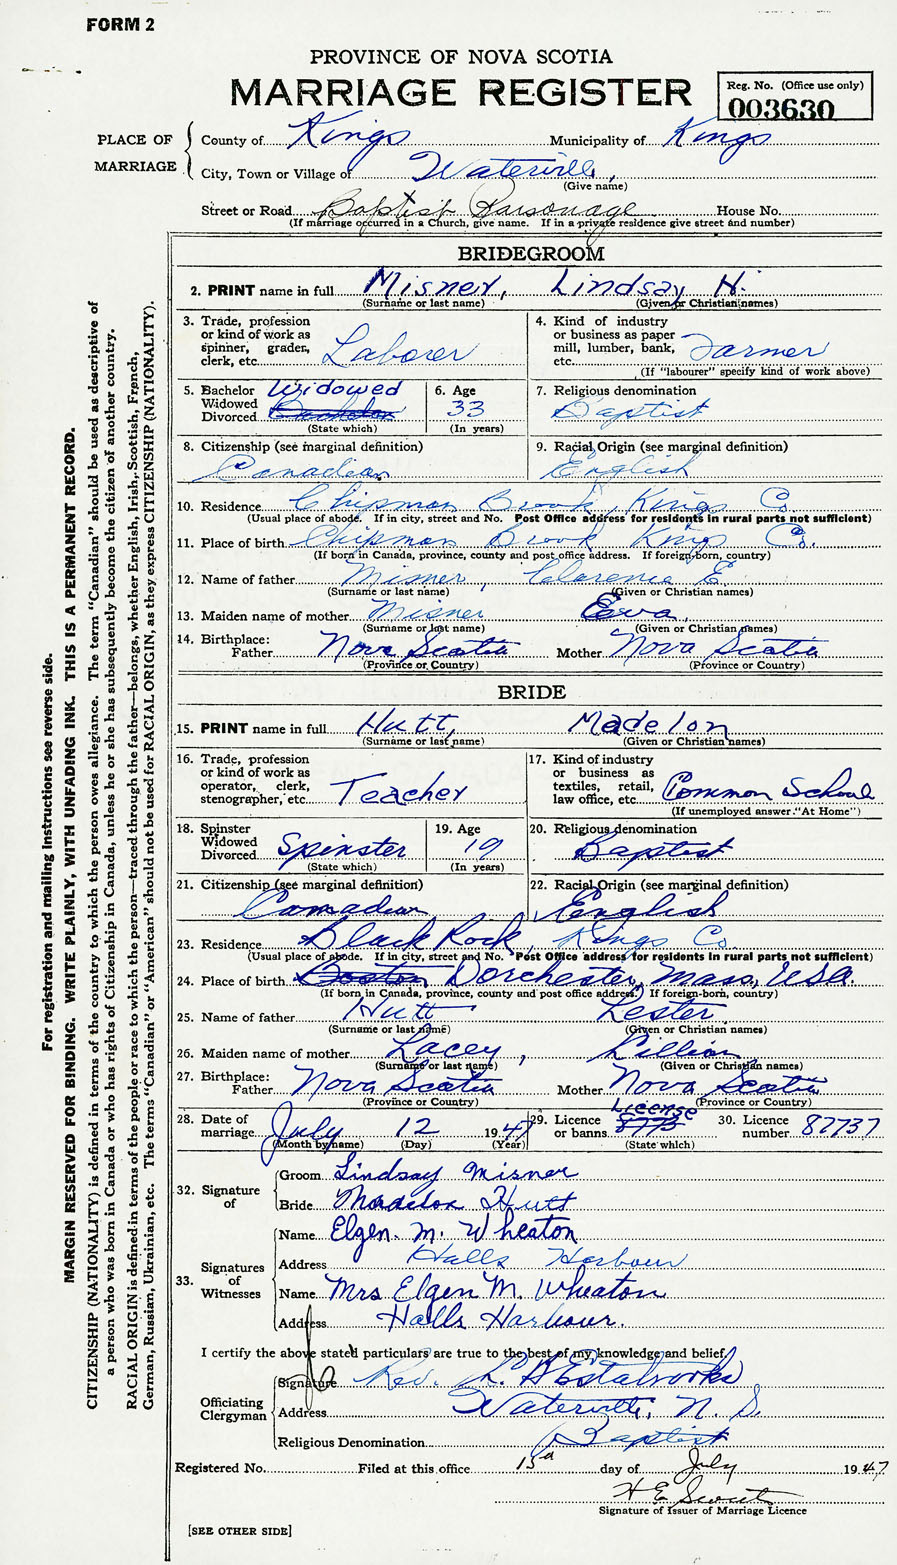 FORM 2
PROVINCE OF NOVA SCOTIA
MARRIAGE REGISTER
Reg. No. (Office use only)
003630
PLACE OF MARRIAGE
County of Kings Municipality of Kings
City, Town or Village of Waterville,
(Give name)
Street or Road Baptist Parsonage House No.
(If marriage occurred in a Church, give name. If in a private residence give street and number)
BRIDEGROOM
2. PRINT name in full Misner, Lindsay H.
(Surname or last name) (Given or Christian names)
3. Trade, profession or kind of work as spinner, grader, clerk, etc. Laborer
4. Kind of industry or business as paper mill, lumber, bank, etc. Farmer
(If "labourer" specify kind of work above)
5. Bachelor Widowed Divorced Widowed Bachelor
(State which)
6. Age 33
(In years)
7. Religious denomination
Baptist
8. Citizenship (see marginal definition)
Canadian
9. Racial Origin (see marginal definition)
English
10. Residence Chipman Brook, Kings Co
(Usual place of abode. If in city, street and No. Post Office address for residents in rural parts not sufficient)
11. Place of birth Chipman Brook Kings Co.
(If born in Canada, province, county and post office address. If foreign-born, country)
12. Name of father Misner, Clarence E.
(Surname or last name) (Given or Christian names)
13. Maiden name of mother Misner Eva
(Surname or last name) (Given or Christian names)
14. Birthplace: Father Nova Scotia Mother Nova Scotia
(Province or Country) (Province or Country)
BRIDE
15. PRINT name in full Hutt, Madelon
(Surname or last name) (Given or Christian names)
16. Trade, profession or kind of work as operator, clerk, stenographer, etc. Teacher
17. Kind of industry or business as textiles, retail, law office, etc. Common School
(If unemployed answer "At Home")
18. Spinster Widowed Divorced Spinster
(State which)
19. Age 19
(In years)
20. Religious denomination
Baptist
21. Citizenship (see marginal definition)
Canadian
22. Racial Origin (see marginal definition)
English
23. Residence Black Rock, Kings Co.
(Usual place of abode. If in city, street and No. Post Office address for residents in rural parts not sufficient)
24. Place of birth Boston Dorchester, Mass, USA.
(If born in Canada, province, county and post office address. If foreign-born, country)
25. Name of father Hutt Lester
(Surname or last name) (Given or Christian names)
26. Maiden name of mother Lacey, Lillian
(Surname or last name) (Given or Christian names)
27. Birthplace: Father Nova Scotia Mother Nova Scotia
(Province or Country) (Province or Country)
28. Date of marriage July 12 1947
(Month by name) (Day) (Year)
29. Licence or banns License
(State which)
30. Licence number 87737
32. Signature of
Groom Lindsay Misner
Bride Madelon Hutt
33. Signatures of Witnesses
Name Elgen. M. Wheaton
Address Halls Harbour
Name Mrs Elgen M. Wheaton
Address Halls Harbour.
I certify the above stated particulars are true to the best of my knowledge and belief.
Officiating Clergyman
Signature Rev.
Address Waterville, N. S.
Religious Denomination Baptist
Registered No. Filed at this office 15 day of July 1947
H E
Signature of Issuer of Marriage Licence
[SEE OTHER SIDE]
For registration and mailing instructions see reverse side.
MARGIN RESERVED FOR BINDING. WRITE PLAINLY, WITH UNFADING INK. THIS IS A PERMANENT RECORD.
CITIZENSHIP (NATIONALITY) is defined in terms of the country to which the person owes allegiance. The term "Canadian" should be used as descriptive of
a person who was born in Canada or who has rights of Citizenship in Canada, unless he or she has subsequently become the citizen of another country.
RACIAL ORIGIN is defined in terms of the people or race to which the person—traced through the father—belongs, whether English, Irish, Scottish, French,
German, Russian, Ukrainian, etc. The terms "Canadian" or "American" should not be used for RACIAL ORIGIN, as they express CITIZENSHIP (NATIONALITY).